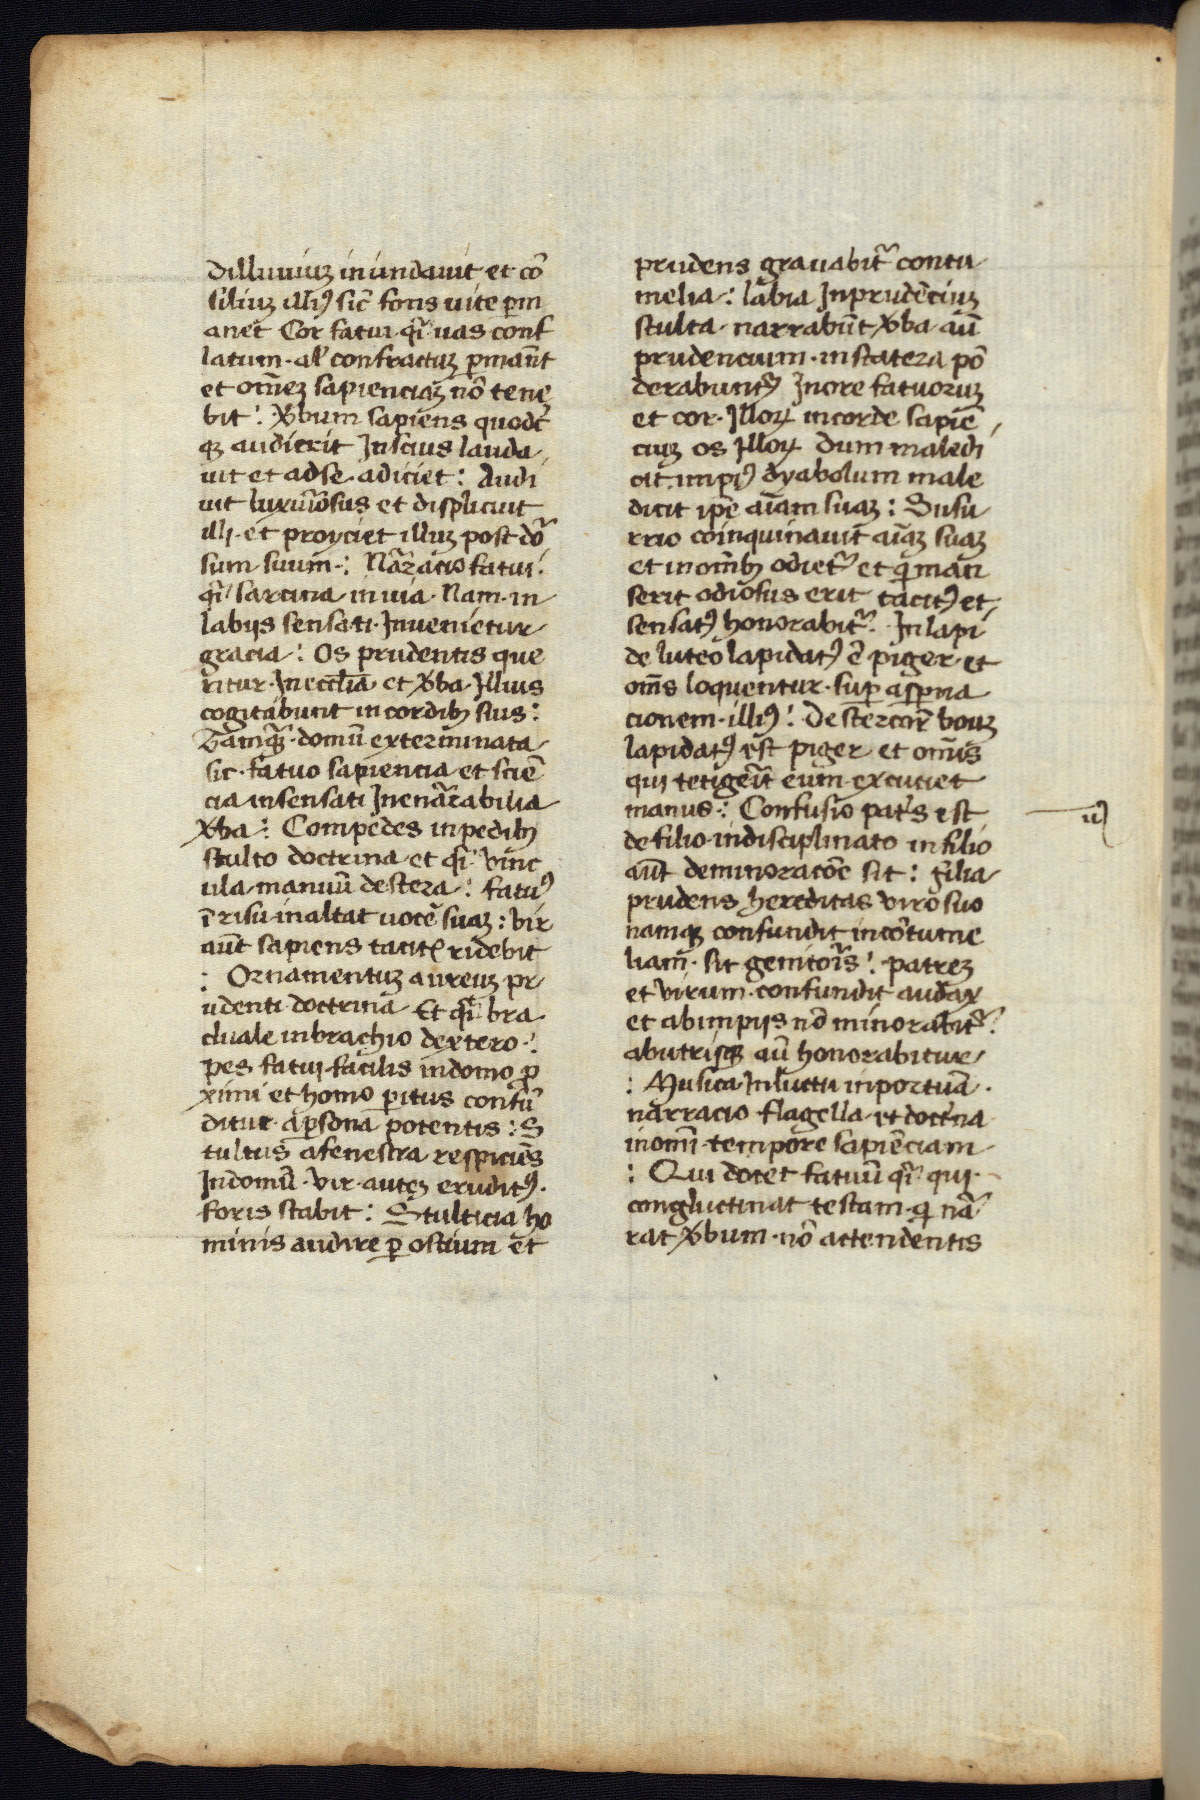 dilluuiuꝫ in undauit et cō
siliuꝫ illiꝰ sic̄ fons uite ꝑm
anet Cor fatui q̄i uas conf
latum · al' confractuꝫ ꝑmān̄t
et om̄eꝫ sapienciaꝫ nō tene
bit : v̉bum sapiens quodc̄
qꝫ audierit Inscius lauda
uit et adse · adiciet : Audi
uit luxuriosus et displicuit
illi · et proyciet illuꝫ post dō
sum suum · : Nar̄acio fatui ·
q̄i sarcina in uia · Nam · in
labijs sensati · Inuenietur
gracia : Os prudentis que
ritur · In eccl̄ia et v̉ba · Illius
cogitabunt in cordibꝫ suis :
Tamqꝫ · domū exterminata
sic · fatuo sapiencia et sciē
cia insensati Inenar̄abilia
v̉ba : Compedes in pedibꝫ
stulto doctrina · et q̄i vinc
ula manuū destera : fatuꝰ
ī risu inaltat uocē suaꝫ : vir
aūt sapiens tacitꝰ ridebit
: Ornamentuꝫ aureuꝫ pr
udenti doctrina Et q̄i bra
chiale in brachio dextero · :
pes fatui facilis in domo ꝓ
ximi et homo ꝑitus confū
ditur · aꝑsona potentis : S
tultus a fenestra respiciēs
In domū · vir · auteꝫ eruditꝰ ·
foris stabit : Stulticia ho
minis audire ꝑ ostium et
prudens grauabit᷑ contu
melia : labia Inprudēciuꝫ
stulta · narrabūt v̉ba · aūt
prudencium · in statera pō
derabuntᷣ In ore fatuoruꝫ
et cor · Illoꝝ in corde sapiē
ciuꝫ os Illoꝝ Dum maledi
cit impiꝰ dyabolum male
dicit ip̄e aīam suaꝫ : Susu
rrio coinquinauit aīaꝫ suaꝫ
et in om̄ibꝫ odiet᷑ et q̄i man
serit odiosus erit tacitꝰ et
sensatꝰ honorabit᷑ · In lapi
de luteo lapidatꝰ ē piger · et
om̄s loquentur · suꝑ asꝑna
cionem · illiꝰ : De stercore bouꝫ
lapidatꝰ est piger et om̄is
qui tetigerit eum excutiet
manus : Confusio pat̄s est
de filio · indisciplinato in filio
aūt deminoracōe sit : filia
prudens hereditas viro suo
namqꝫ confundit in cōtume
liam · sit genitoris : patreꝫ
et virum · confundit audax
et ab impijs nō minorabit᷑ ·
ab utrisqꝫ aū honorabitur
: Musica In luctu inportūa ·
narracio flagella et doct̄na
in om̄i tempore sapienciam
: Qui docet fatuū q̄i qui ·
congluctinat testam · q̄i nar̄
rat v̉bum · nō attendentis